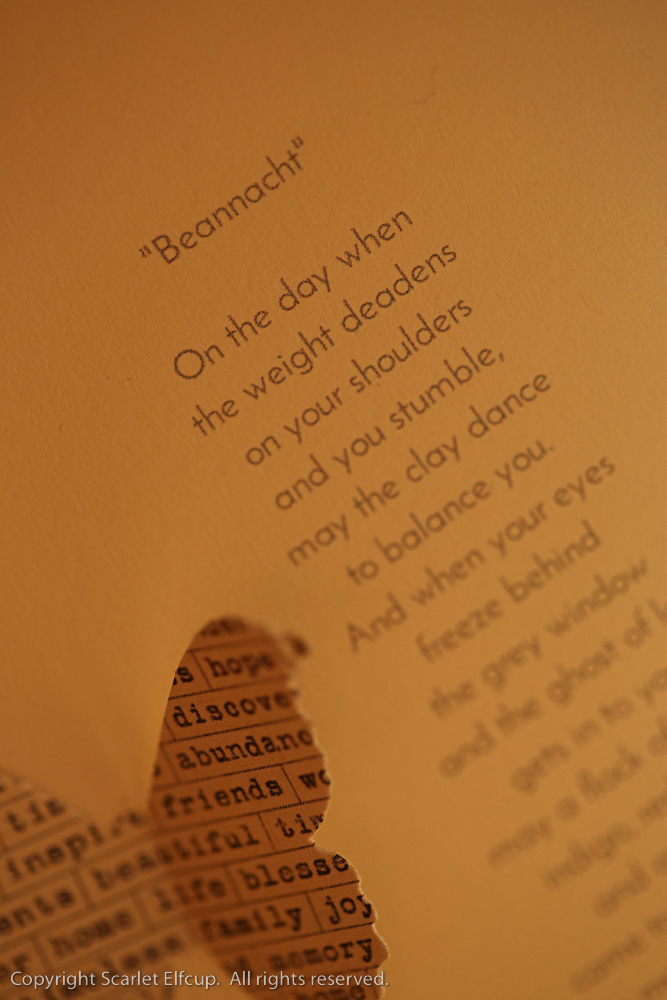 "Beannacht"
On the day when
the weight deadens
on your shoulders
and you stumble,
may the clay dance
to balance you.
And when your eyes
freeze behind
the grey window
and the ghost of
gets in to
may a flock
indigo,
and
come
s hope
discove
abundanc
friends wo
inspire beautiful ti
ents life blesse
home family joy
memory
home
Copyright Scarlet Elfcup. All rights reserved.